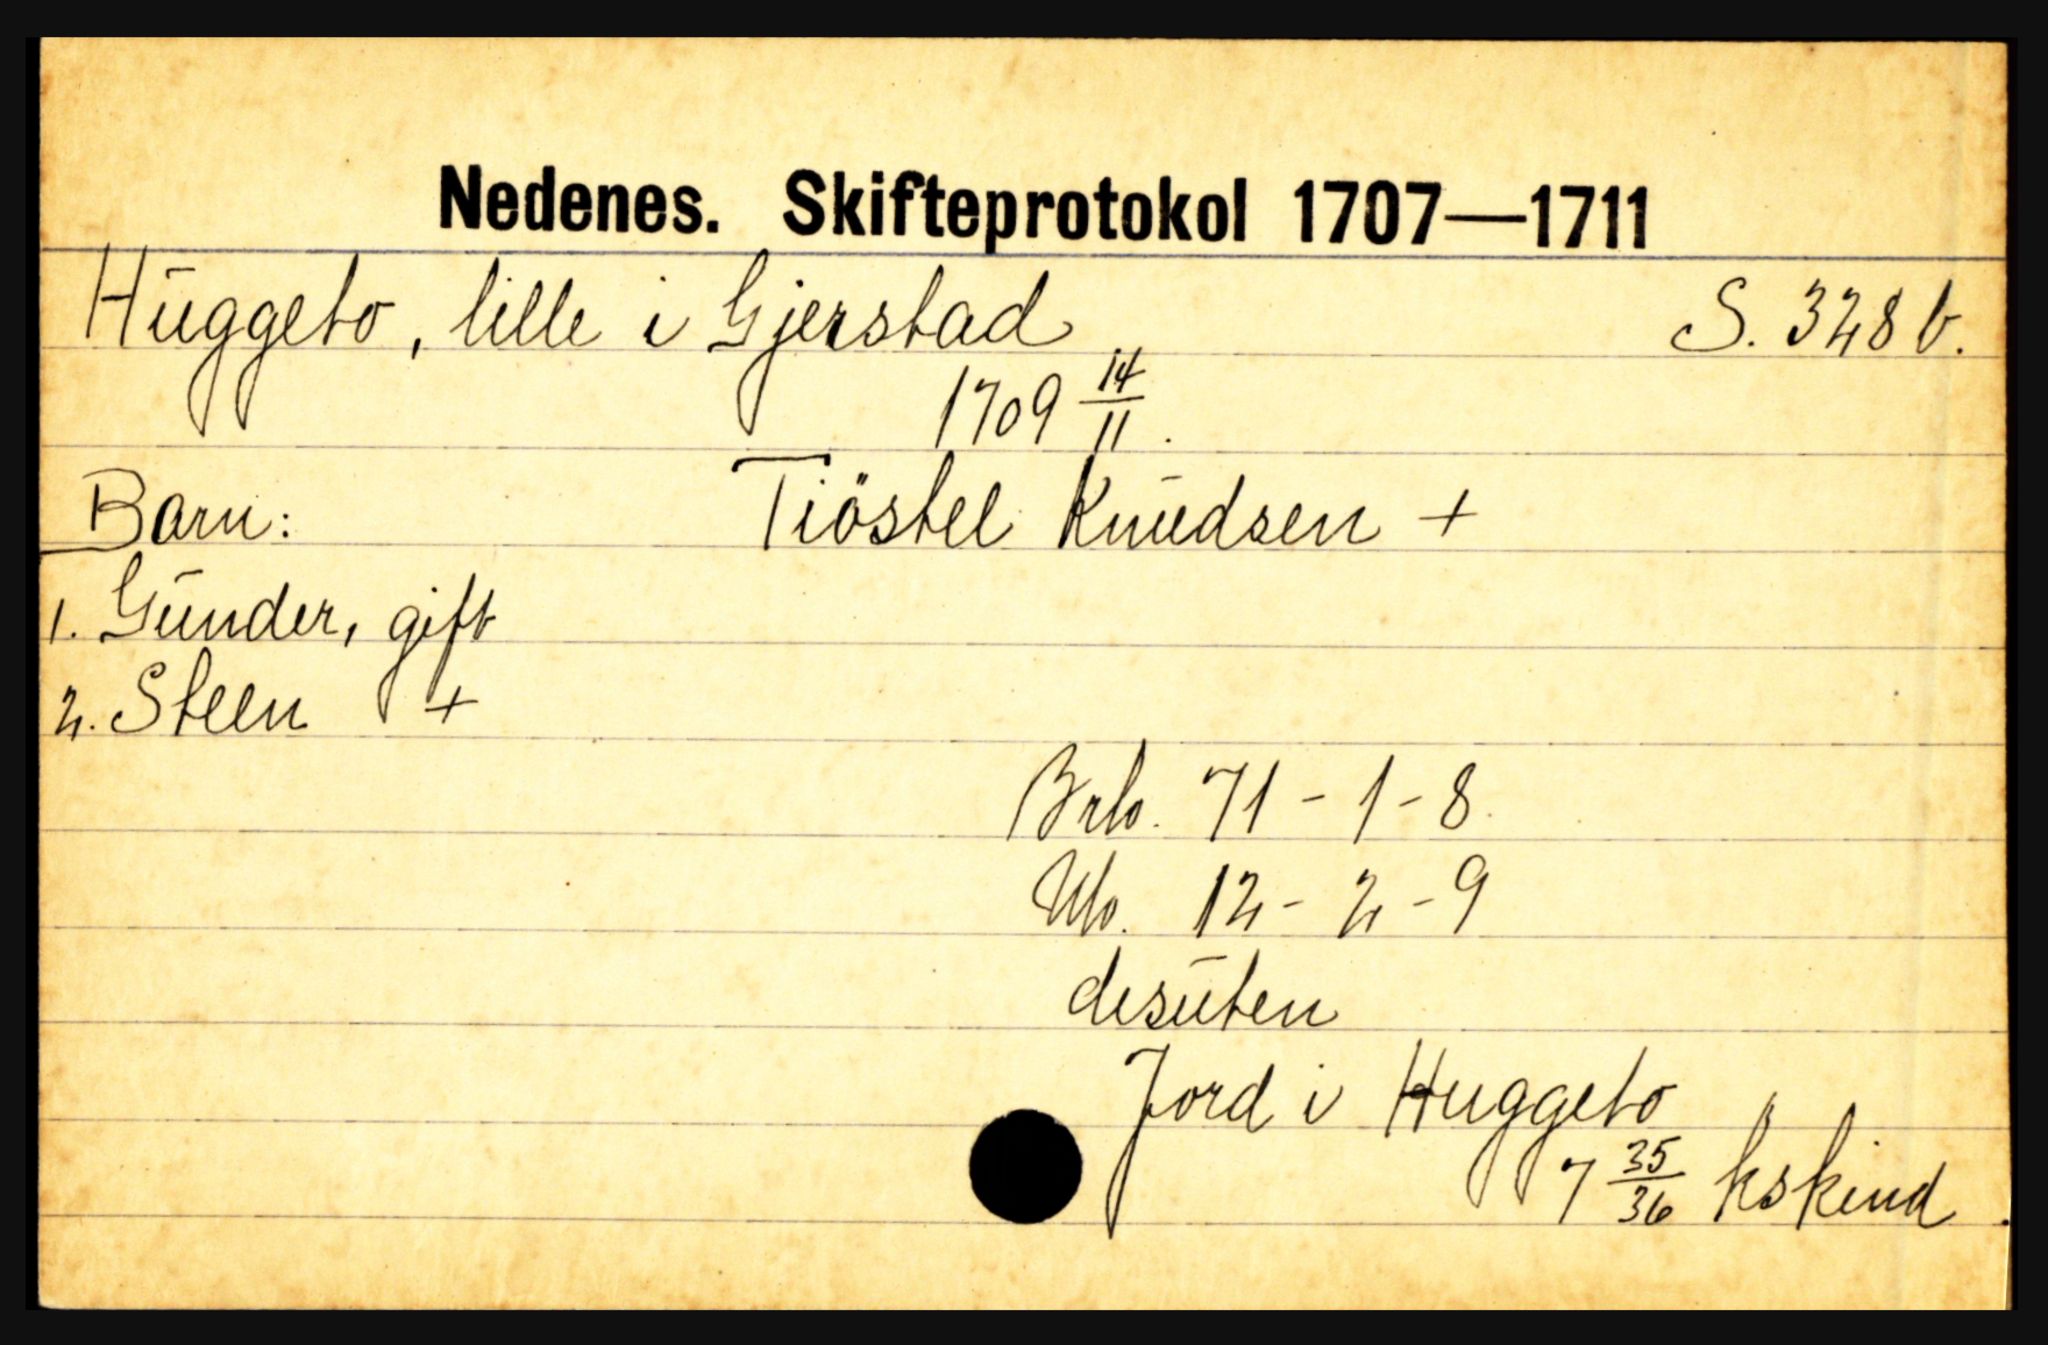 Nedenes. Skifteprotokol 1707—1711
Huggeto, lille i Gjerstad S. 328 b.
1709 14/11.
Barn: Tiöstel Knudsen +
1. Gunder, gift
2. Steen +
Brto. 71 - 1 - 8.
Nto. 12 - 2 - 9
desuten
Jord i Huggeto
7 35/36 kskind.